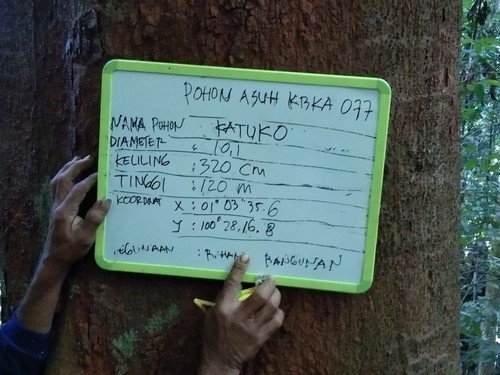 POHON ASUH KBKA 077
NAMA POHON : KATUKO
DIAMETER : 10,1
KELILING : 320 cm
TINGGI : 120 m
KOORDINAT X : 01° 03' 35.6
Y : 100° 28. 16. 8
BANGUNAN